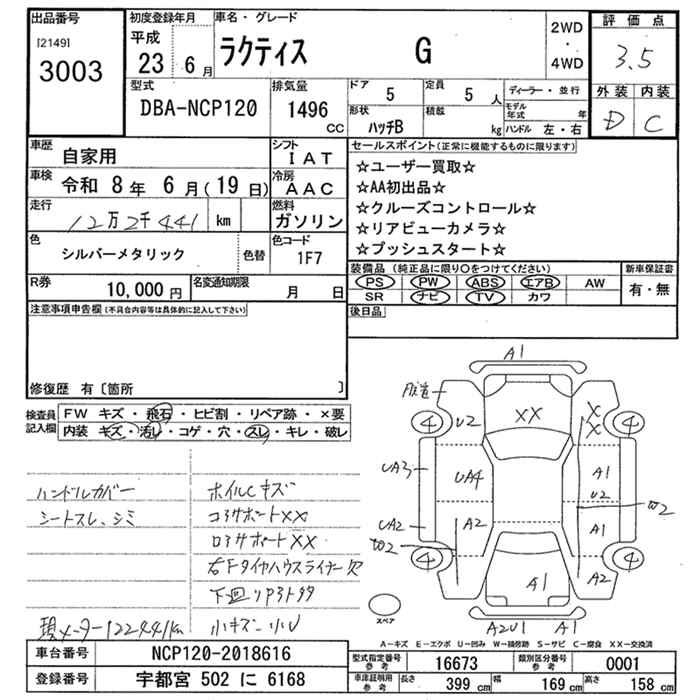 出品番号
[2149]
3003
初度登録年月
平成
23 6月
車名・グレード
ラクティス G
2WD
・
4WD
評価点
3.5
外装 内装
D C
型式
DBA-NCP120
排気量
1496
CC
ドア
5
定員
5 人
形状
ハッチB
積載
kg
ディーラー・並行
モデル年式 年
ハンドル 左・右
車歴
自家用
シフト
IAT
車検
令和 8年 6月(19日)
冷房
AAC
走行
12万2千441 km
燃料
ガソリン
色
シルバーメタリック
色替
色コード
1F7
R券
10,000円
名変通知期限
月 日
セールスポイント(正常に機能するものに限ります)
☆ユーザー買取☆
☆AA初出品☆
☆クルーズコントロール☆
☆リアビューカメラ☆
☆プッシュスタート☆
装備品(純正品に限り○をつけてください)
PS PW ABS エアB AW
SR ナビ TV カワ
新車保証書
有・無
後日品
注意事項申告欄(不具合内容等は具体的に記入して下さい)
修復歴 有〔箇所 〕
検査員記入欄
FW キズ・飛石・ヒビ割・リペア跡・×要
内装 キズ・汚レ・コゲ・穴・スレ・キレ・破レ
ハンドルカバー
シートスレ、シミ
現メーター122441km
ホイルCキズ
コアサポートXX
ロアサポートXX
右FタイヤハウスライナーXX欠
下廻リ
小キズ・小U
A1
XX
U2
X
X
4
4
UA3
UA4
A1
U2
W2
UA2
A2
A1
W2
4
4
A1
A2
A2U1 A1
スペア
A-キズ E-エクボ U-凹み W-補修跡 S-サビ C-腐食 XX-交換済
車台番号
NCP120-2018616
登録番号
宇都宮 502 に 6168
型式指定番号
参考
16673
類別区分番号
参考
0001
車庫証明用
参考
長さ
399 cm
幅
169 cm
高さ
158 cm